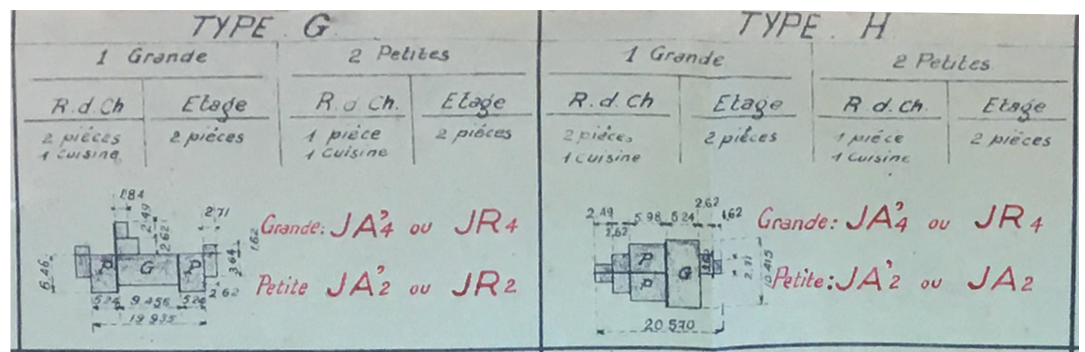 TYPE. G
1 Grande
2 Petites
R.d.Ch
Etage
R.d.Ch.
Etage
2 pièces
1 Cuisine
2 pièces
1 pièce
1 Cuisine
2 pièces
1.84
2.49
2.62
2.71
6.46
P
G
P
3.64
1.62
2.62
5.24
9.456
5.24
19.935
Grande: JA'4 ou JR4
Petite JA'2 ou JR2
TYPE. H
1 Grande
2 Petites
R.d.Ch
Etage
R.d.ch.
Etage
2 pièces
1 Cuisine
2 pièces
1 pièce
1 Cuisine
2 pièces
2.49
2.62
5.98
5.24
2.62
1.62
P
P
G
10.415
20.570
Grande: JA'4 ou JR4
Petite: JA'2 ou JA2